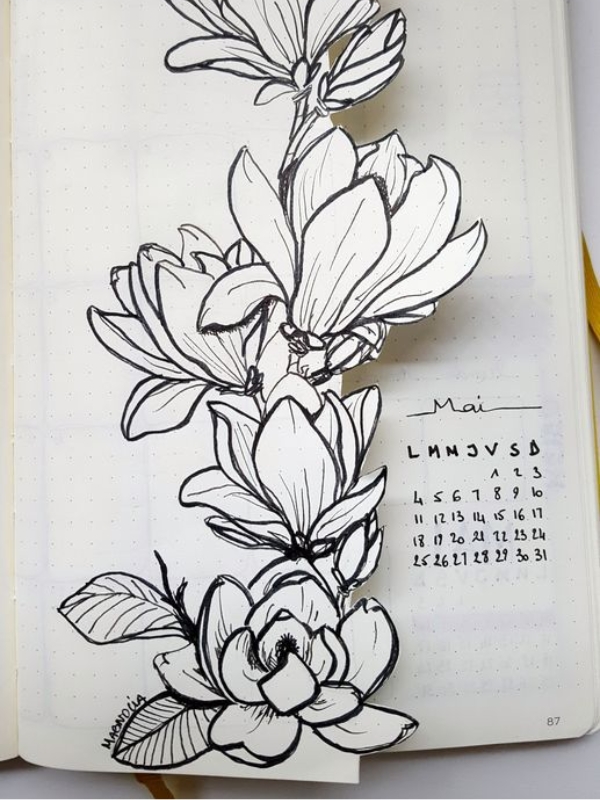 Mai
L M M J V S D
1 2 3
4 5 6 7 8 9 10
11 12 13 14 15 16 17
18 19 20 21 22 23 24
25 26 27 28 29 30 31
MAGNOLIA
87